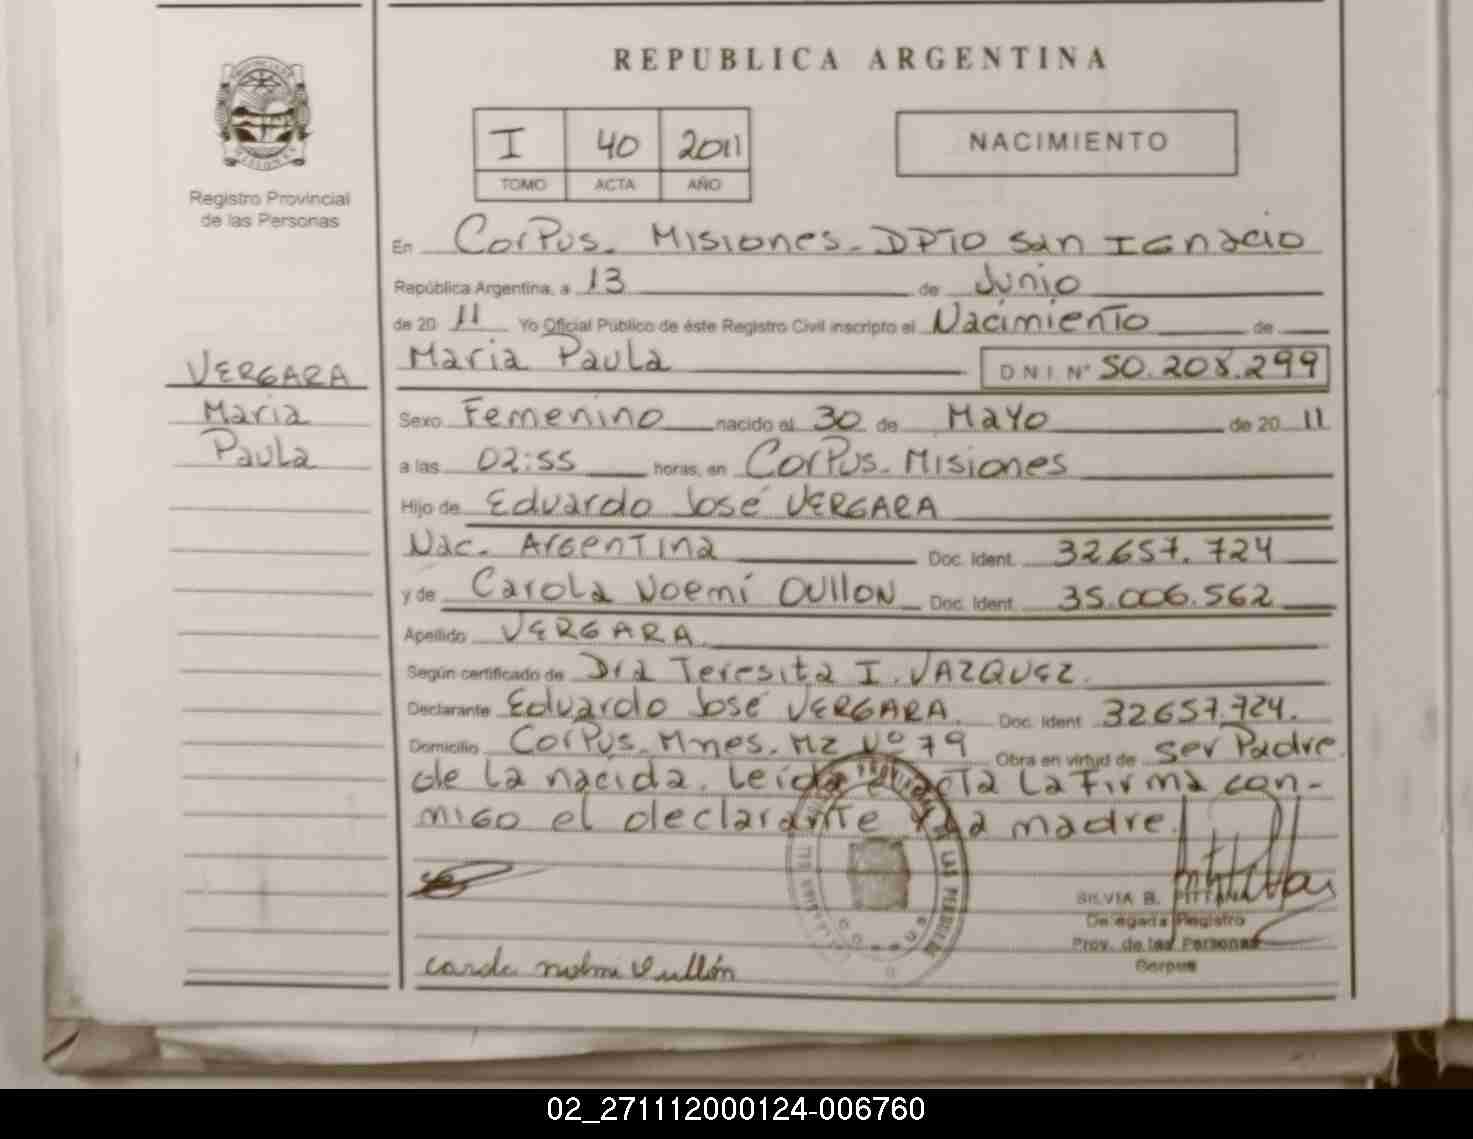 REPUBLICA ARGENTINA
I 40 2011
TOMO ACTA AÑO
NACIMIENTO
Registro Provincial
de las Personas
VERGARA
Maria
Paula
En Corpus. Misiones. DPTO San Ignacio
República Argentina, a 13 de Junio
de 20 11 Yo Oficial Público de éste Registro Civil inscripto el Nacimiento de
Maria Paula D N I Nº 50.208.299
Sexo Femenino nacido el 30 de Mayo de 20 11
a las 02:55 horas, en Corpus. Misiones
Hijo de Eduardo José VERGARA
Nac. Argentina Doc. Ident. 32657.724
y de Carola Noemí OUllON Doc. Ident. 35.006.562
Apellido VERGARA
Según certificado de Dra Teresita I. VAZQUEZ.
Declarante Eduardo José VERGARA. Doc. Ident 32657.724.
Domicilio Corpus. Mnes. Mz Nº 79 Obra en virtud de ser Padre
de la nacida. Leída acta la firma con-
migo el declarante y la madre.
SILVIA B. PITTANA
Delegada Registro
Prov. de las Personas
Corpus
02_271112000124-006760